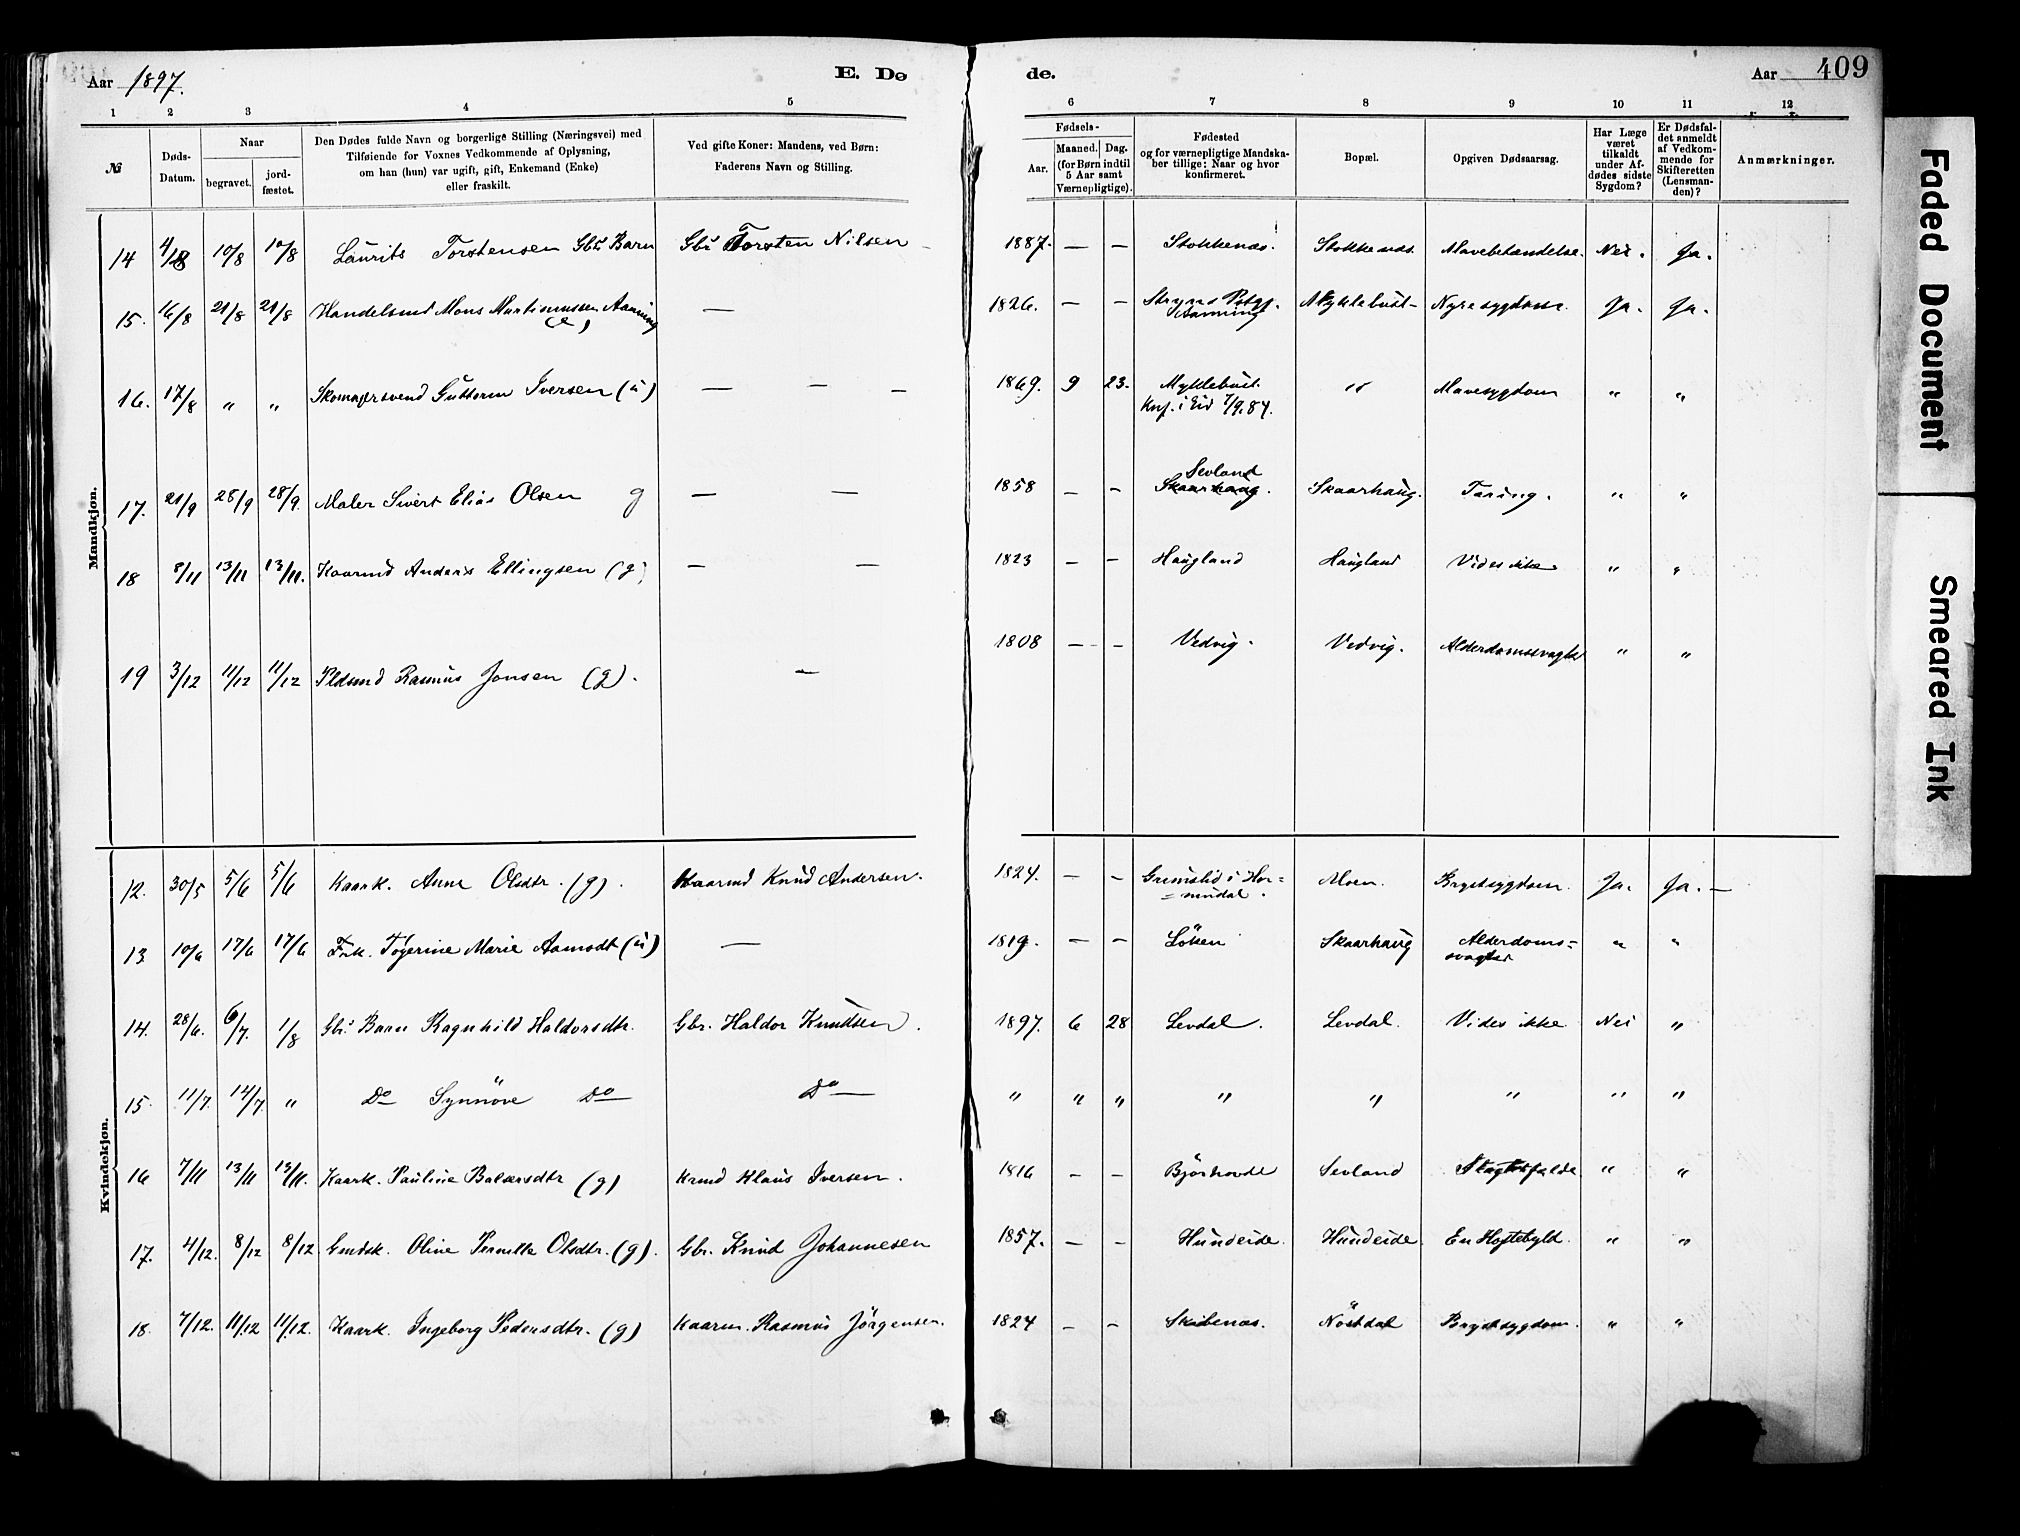 Aar 1897.
E. Dø
de.
Aar 409
1 2 3 4 5 6 7 8 9 10 11 12
№
Døds-Datum.
Naar
begravet.
jordfæstet.
Den Dødes fulde Navn og borgerlige Stilling (Næringsvei) med
Tilføiende for Voxnes Vedkommende af Oplysning,
om han (hun) var ugift, gift, Enkemand (Enke)
eller fraskilt.
Ved gifte Koner: Mandens, ved Børn:
Faderens Navn og Stilling.
Fødsels-
Aar.
Maaned. Dag.
(for Børn indtil
5 Aar samt
Værnepligtige).
Fødested
og for værnepligtige Mandskaber tillige: Naar og hvor
konfirmeret.
Bopæl.
Opgiven Dødsaarsag.
Har Læge
været
tilkaldt
under Afdødes sidste
Sygdom?
Er Dødsfaldet anmeldt
af Vedkommende for
Skifteretten
(Lensmanden)?
Anmærkninger.
Mandkjøn.
14 4/8 10/8 10/8 Laurits Torstensen Gbrs Barn Gbr Torsten Nilsen 1887. — — Stokkenæs. Stokkenæs. Mavebetændelse. Nei. Ja.
15. 16/8 21/8 21/8 Handelsmd Mons Martinussen Aaning (e) — 1826. — — Stryns Pstgj. Aanning Myklebust Nyresygdom. Ja. Ja.
16. 17/8 " " Skomagersvend Guttorm Iversen (u) — — — 1869. 9 23. Myklebust. Knf. i Eid 7/9.84. " Mavesygdom " "
17. 21/9 28/9 28/9. Maler Sivert Elias Olsen g — — 1858 — — Sevland Skaarhaug. Skaarhaug. Tæring. " "
18 8/11 13/11 13/11. Kaarmd Anders Ellingsen (g) — — 1823 — — Haugland Haugland Vides ikke " "
19 3/12 11/12 11/12 Pldsmd Rasmus Jonsen (g). — 1808 — — Vedvig. Vedvig. Alderdomssvaghed " "
Kvindekjøn.
12. 30/5 5/6 5/6 Kaark. Anne Olsdtr. (g). Kaarmd Knud Andersen. 1824. — — Grimslid i Hor= =nindal. Moen. Brystsygdom. Ja. Ja. —
13 10/6 17/6 17/6 Frk. Tøgerine Marie Aamodt (u) — 1819. — — Løken Skaarhaug Alderdoms= svaghed " "
14. 28/6. 6/7. 1/8 Gbrs Barn Ragnhild Haldorsdtr. Gbr. Haldor Knudsen. 1897. 6 28 Levdal. Levdal. Vides ikke Nei "
15. 11/7. 14/7. " Do Synnøve Do Do — " " " " " " " "
16 7/11 13/11 13/11. Kaark. Pauline Balsersdtr (g) Krmd Klaus Iversen. 1816 — — Bjørhovde Sevland " "
17. 4/12. 8/12 8/12 Gmdsk. Oline Pernille Olsdtr. (g). Gbr. Knud Johannesen 1857. — — Hundeide. Hundeide. En Hoftebyld. " "
18. 7/12. 11/12 11/12. Kaark. Ingeborg Pedersdtr. (g) Kaarm. Rasmus Jörgensen. 1824 — — Skibenæs. Nöstdal Brystsygdom. " "
Faded Document
Smeared Ink